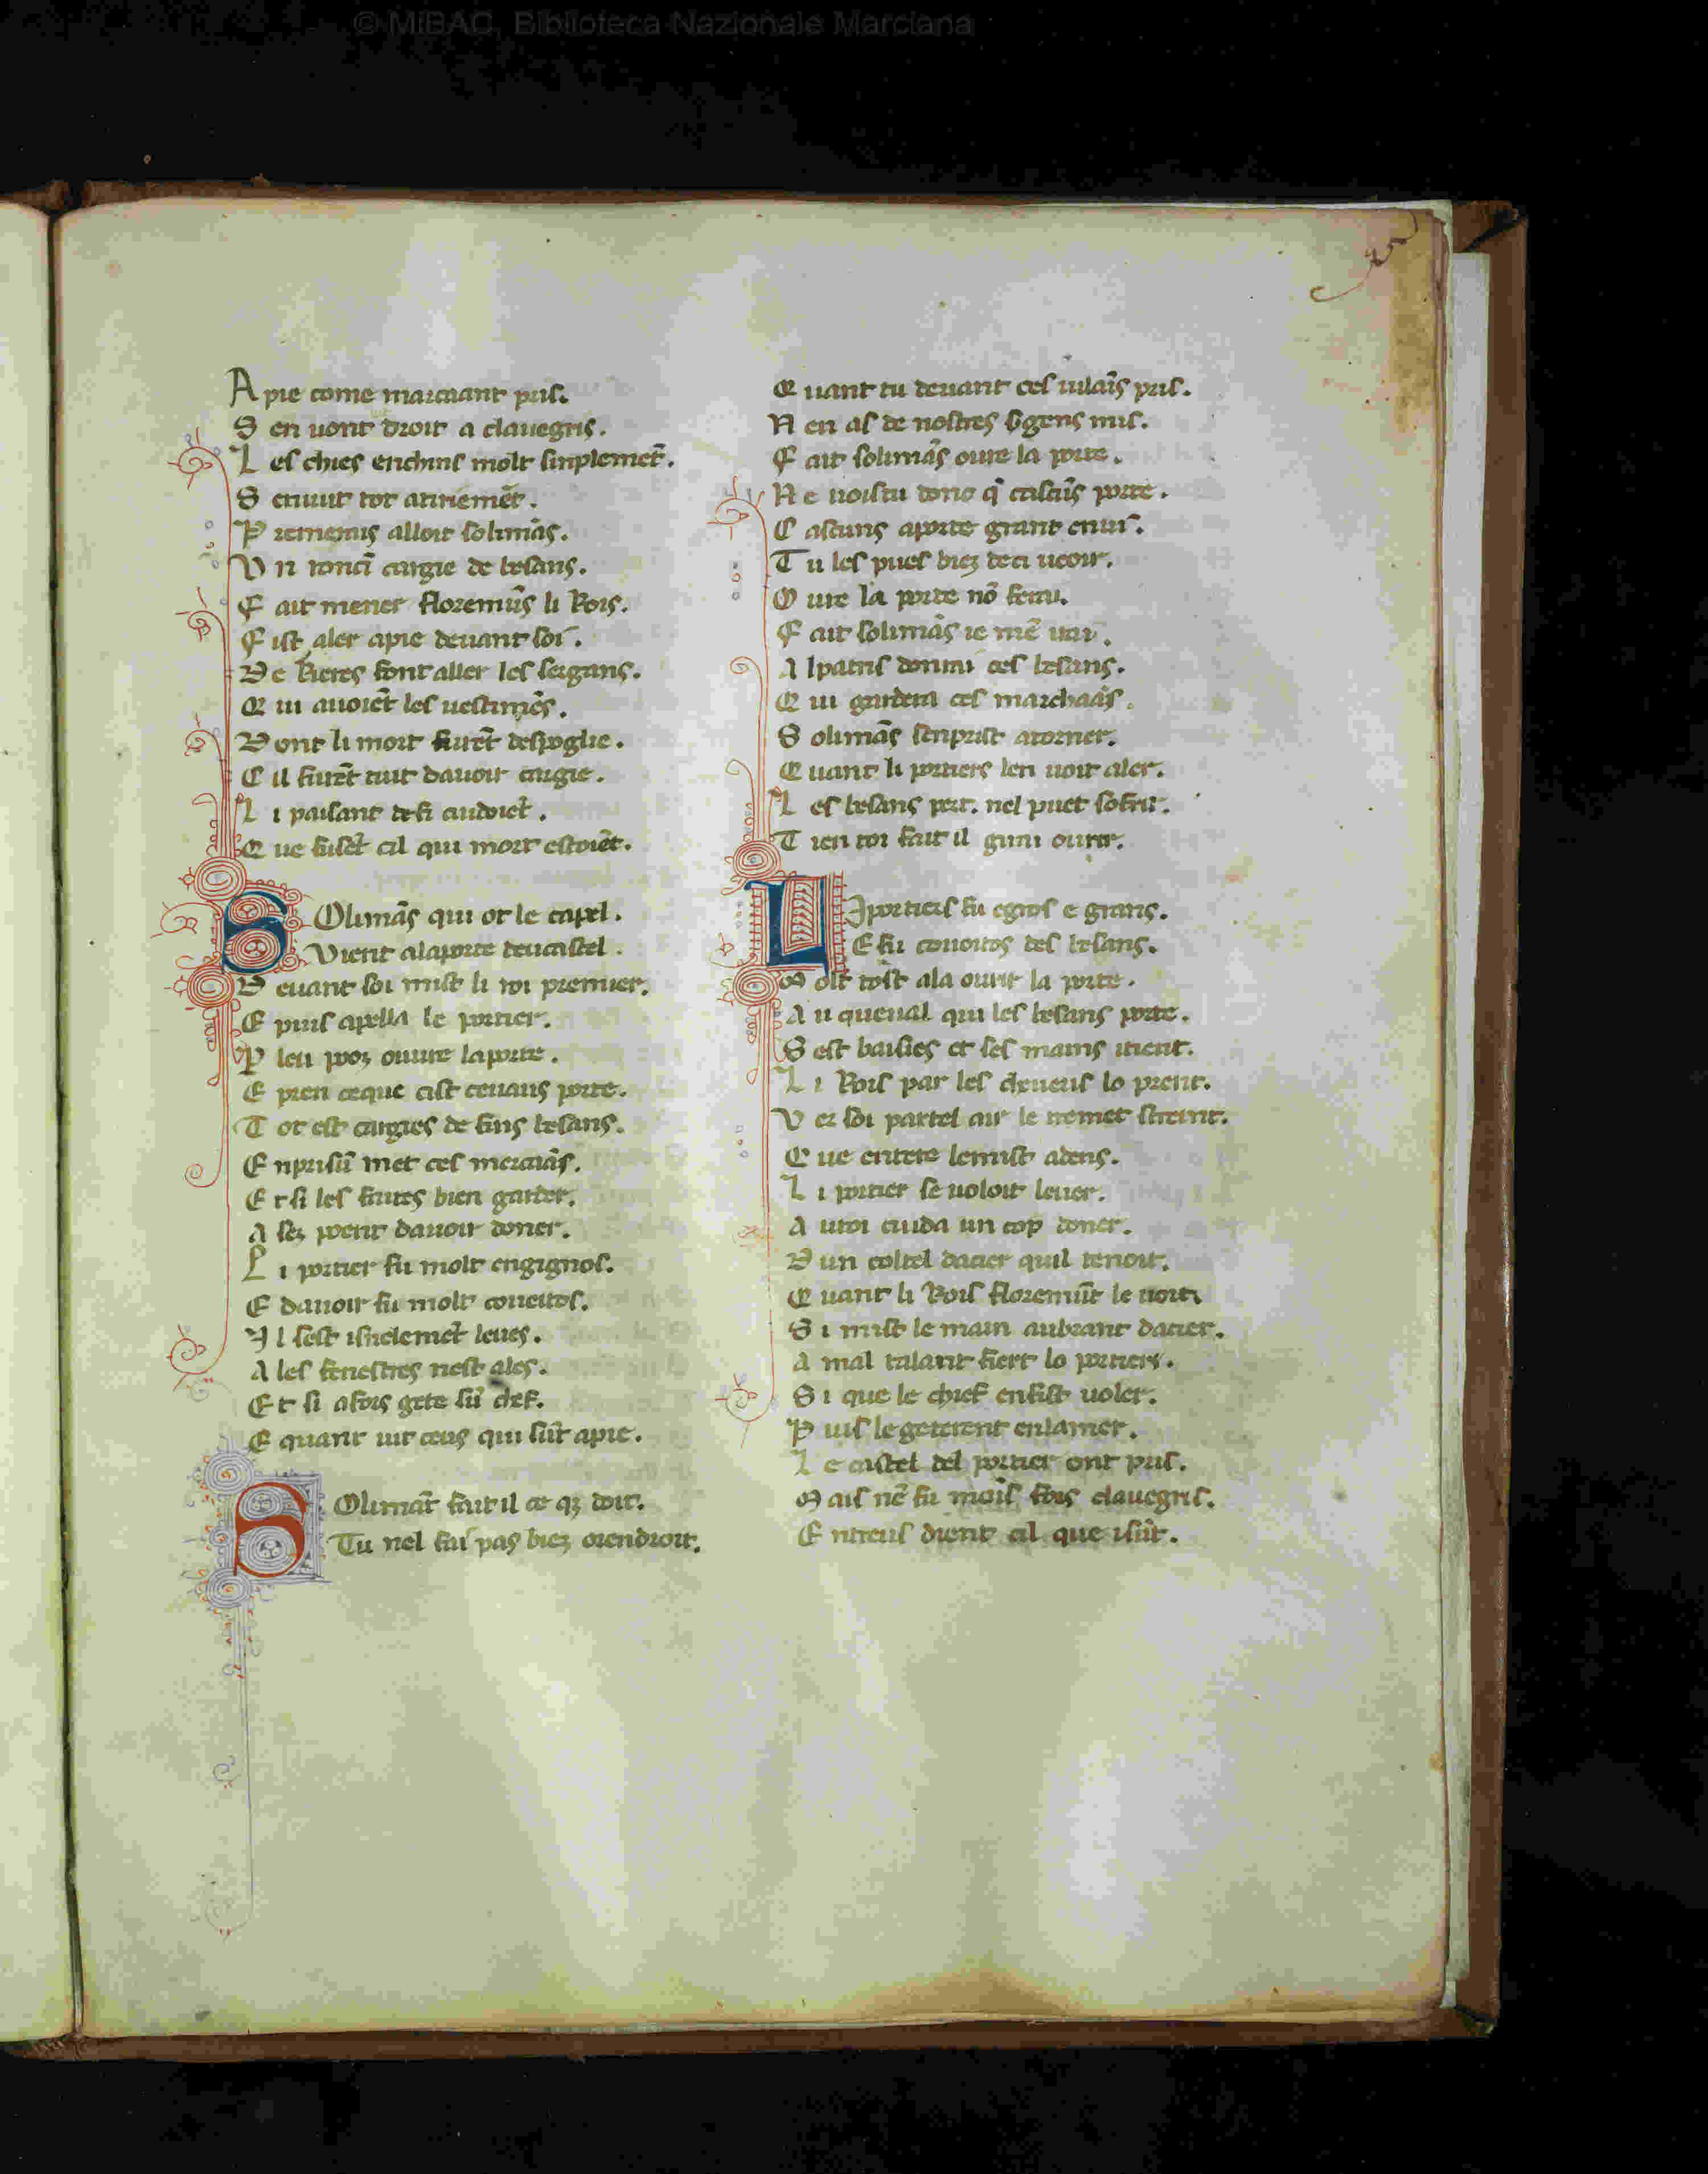 © MiBAC, Biblioteca Nazionale Marciana
A pie come marcaant pris.
S en uont droit a clauegris.
L es chies enchins molt sinplemet̃.
S enuut tot atiriemẽt.
P remerais alloit solimãs.
V n roncĩ cargie de besans.
F ait mener floremũs li Rois.
F ist aler apie deuant soi.
D e rieres font aller les sergans.
Q ui auoiẽt les uestimẽs.
D ont li mort furẽt despoglie.
C il furẽt tuit dauoir cargie.
L i paisant defi cuidoiẽt.
Q ue fusẽt cil qui mort estoiẽt.
S Olimãs qui ot le capel.
Vient alaporte deucastel.
D euant soi mist li roi premier.
E puis apella le portier.
P leu proz ouure laporte.
E pren ceque cist ceuaus porte.
T ot est cargies de fins besans.
E nprisũ met ces mercaãs.
E t si les faites bien garder.
A sez poent dauoir doner.
L i portier fu molt engignos.
E dauoir fu molt coueitos.
I l sest isnelemẽt leues.
A les fenestres nest ales.
E t si afors gete sũ chef.
E quant uit ceus qui sũt apie.
S Olimãt fait il ce qz doit.
Tu nel fai pas biez orendroit.
Q uant tu deuant ces uilaĩs pris.
N en as de nostres sgens mis.
F ait solimãs oure la porte.
N e uoistu donc q̃ cascũs porte.
C ascuns aporte grant enui.
T u les pues biez deci ueoir.
O ure la porte nõ ferai.
F ait solimãs ie mẽ uai.
A lpatris donrai ces besans.
Q ui gardera ces marchaãs.
S olimãs senprist atorner.
Q uant li portiers len uoit aler.
L es besans pert. nel puet sofrir.
T ien toi fait il girai ourir.
L Iportiers fu egros e grans.
E fu couoitos des besans.
M olt tost ala ourir la porte.
A u queual qui les besans porte.
S est baisies et ses mains itient.
L i Rois par les cheueus lo prent.
V er soi partel air le tremet street.
Q ue entere lemist adens.
L i portier se uoloit leuer.
A uroi cuida un cop doner.
D un coltel dacier quil tenoit.
Q uant li Rois floremũt le uoit.
S i mist le main aubrant dacier.
A mal talant fiert lo portiers.
S i que le chief enfist uoler.
P uis legeterent enlamer.
L e castel del portier ont pris.
M ais nẽ fu mais fors clauegris.
E ntreus dient cil que isũt.